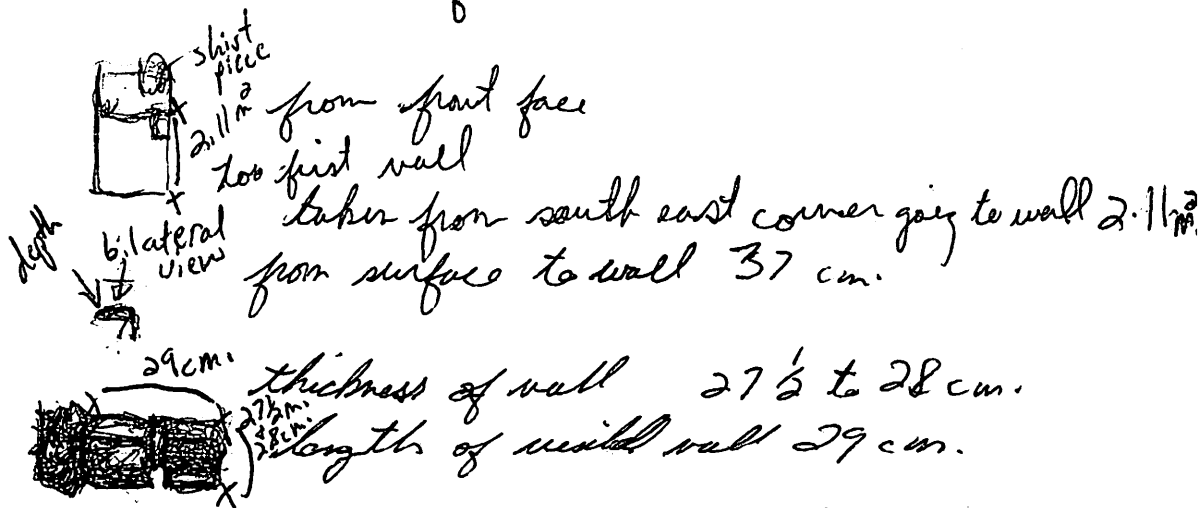 shirt
piece
2.11 m
from front face
too first wall
taken from south east corner going to wall 2.11 m.
depth
bilateral
view
from surface to wall 37 cm.
29 cm.
thickness of wall 27 ½ to 28 cm.
27½ m.
28 cm.
length of visible wall 29 cm.